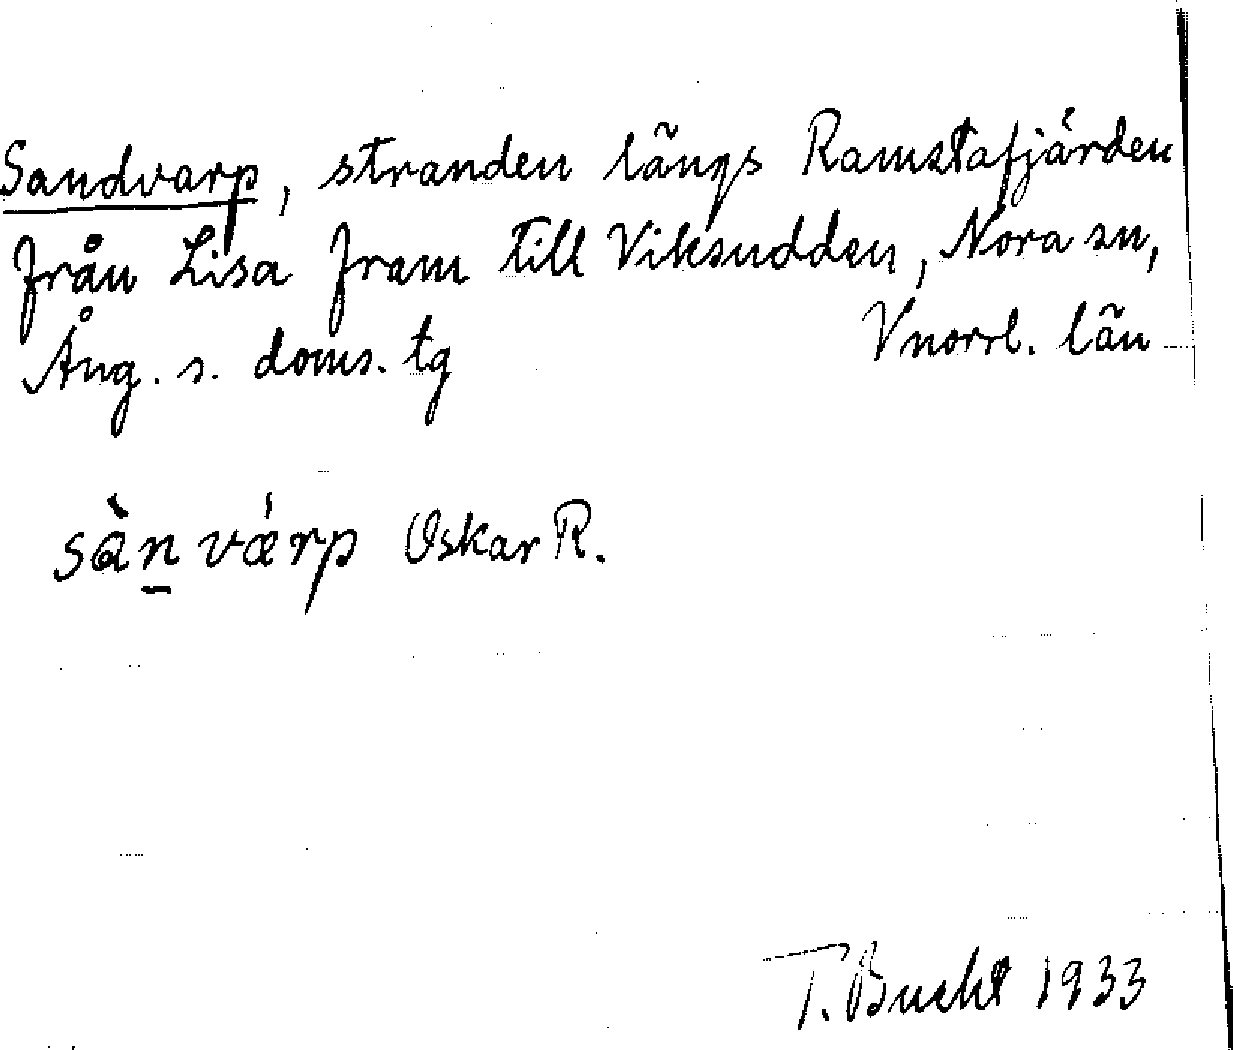 Sandvarp, stranden längs Ramstafjärden
från Lisa fram till Viksudden, Nora sn,
Ång. s. doms. tg Vnorrl. län
sànvárp Oskar R.
T. Bucht 1933